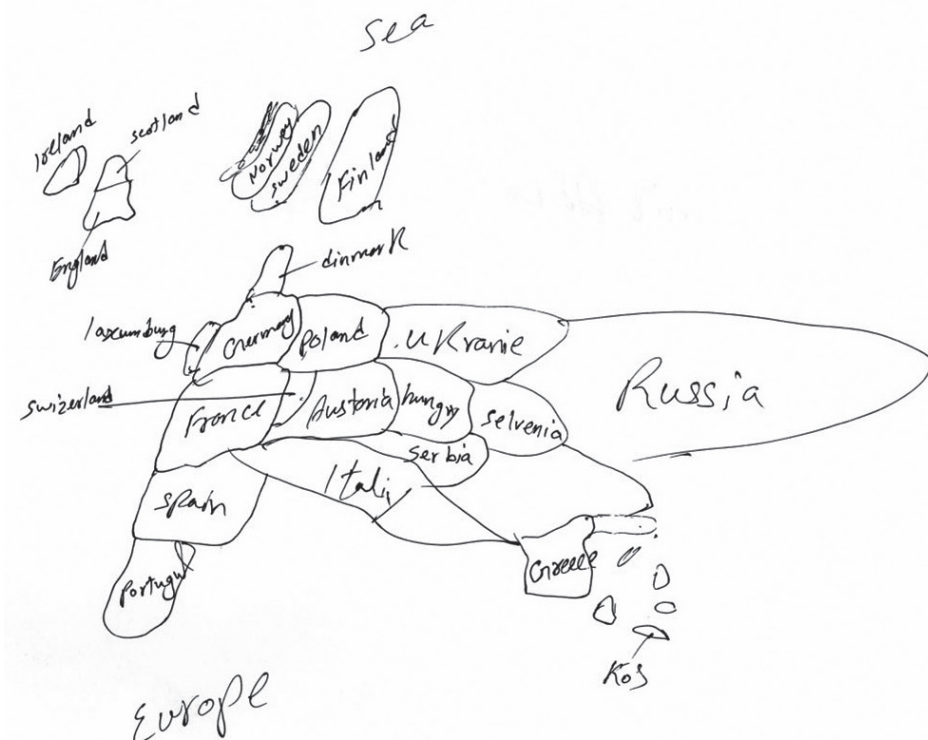 Sea
Ireland
scotland
Norway
sweden
Finland
England
dinmark
laxumburg
Germany
Poland
UKranie
Russia
swizerland
France
Austoria
hungry
selvenia
serbia
Itali
spain
Greece
Portugul
Kos
Europe